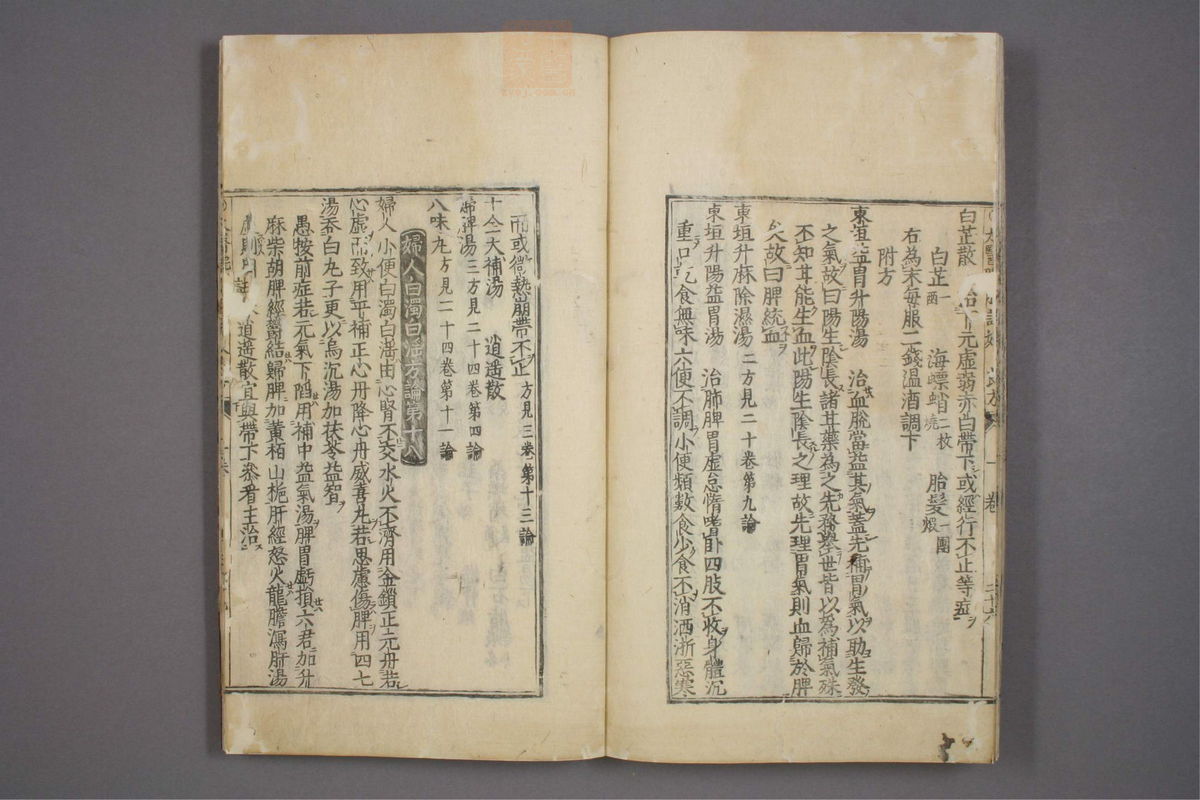 白芷散 治下元虛弱赤白帶下或經行不止等症
白芷一兩 海螵蛸二枚燒 胎髮一團煅
右為末每服二錢温酒調下
附方
東垣益胃升陽湯 治血脫當益其氣蓋先補胃氣以助生發
之氣故曰陽生陰長諸甘藥為之先務舉世皆以為補氣殊
不知其能生血此陽生陰長之理故先理胃氣則血歸於脾
故曰脾統血
東垣升麻除濕湯 二方見二十卷第九論
東垣升陽益胃湯 治肺脾胃虛怠惰嗜卧四肢不收身體沉
重口乾食無味六便不調小便類數食少食不消洒淅惡寒
而或微熱崩帶不止 方見三卷第十三論
十全大補湯 逍遙散
歸脾湯 三方見二十四卷第四論
八味丸 方見二十四卷第十一論
婦人白濁白淫方論第十八
婦人小便白濁白淫由心腎不交水火不濟用金鎖正元丹若
心虛而致用平補正心丹降心丹威喜丸若思慮傷脾用四七
湯吞白丸子更以烏沉湯加茯苓益智
愚按前症若元氣下陷用補中益氣湯脾胃虧損六君加升
麻柴胡脾經鬱結歸脾加黃栢山梔肝經怒火龍膽瀉肝湯
逍遙散宜與帶下參看主治